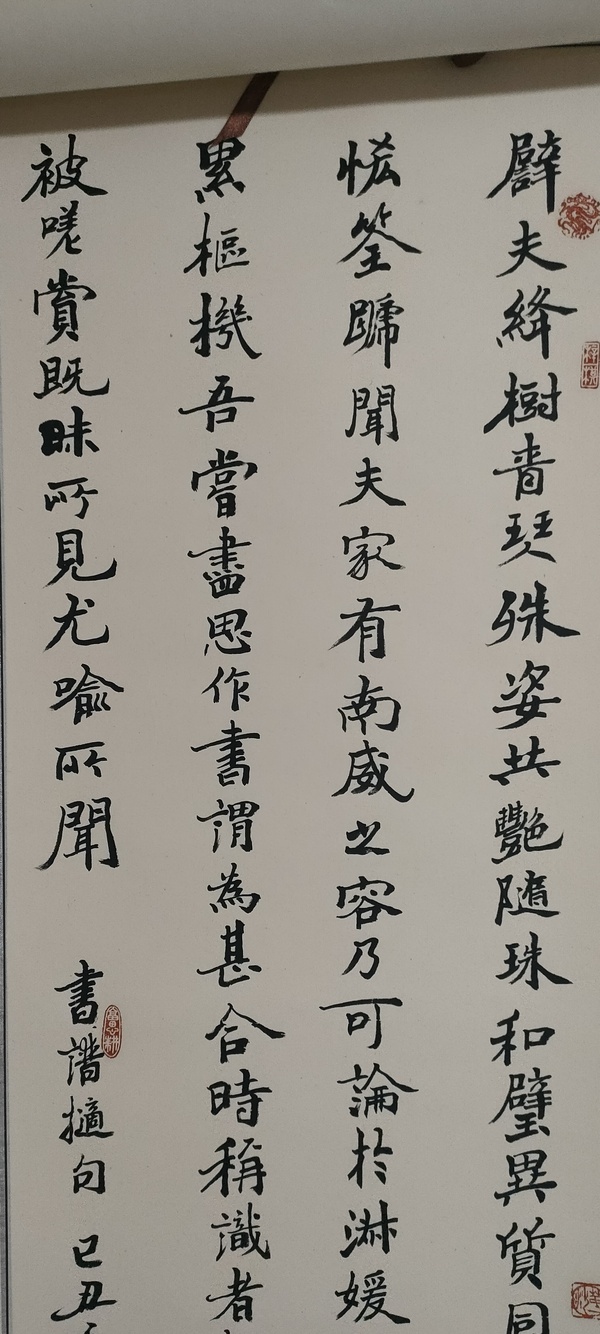 譬夫絳樹青琴殊姿共艷隨珠和璧異質同
恡筌蹄聞夫家有南威之容乃可論於淑媛
累樞機吾嘗盡思作書謂為甚合時稱識者
被嗟賞既昧所見尤喻所聞
書譜擿句 己丑